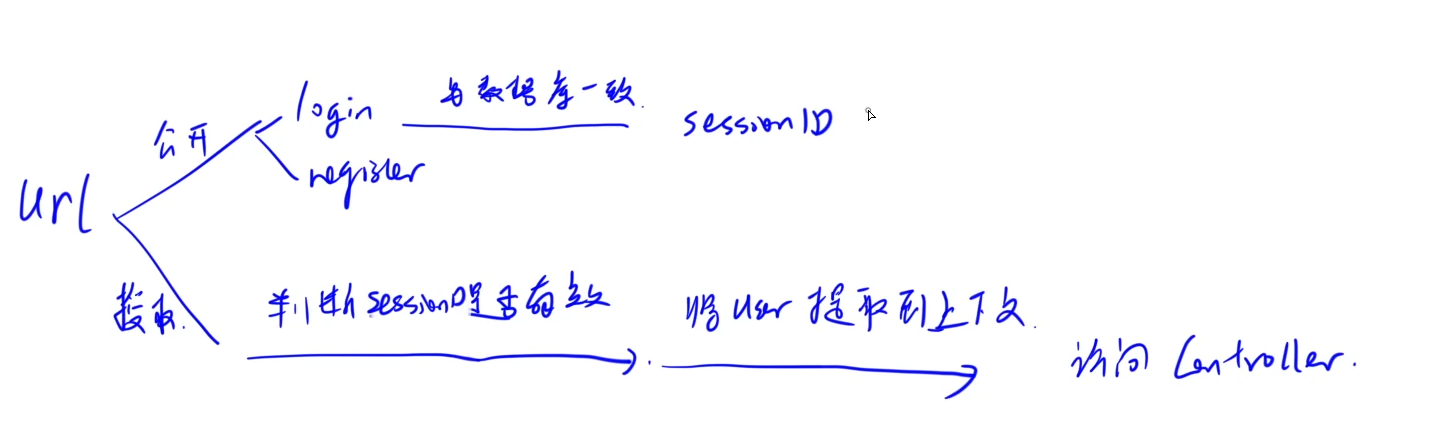 url
公开
login
register
与数据库一致.
sessionID
授权.
判断sessionID是否有效
将user提取到上下文.
访问 Controller.